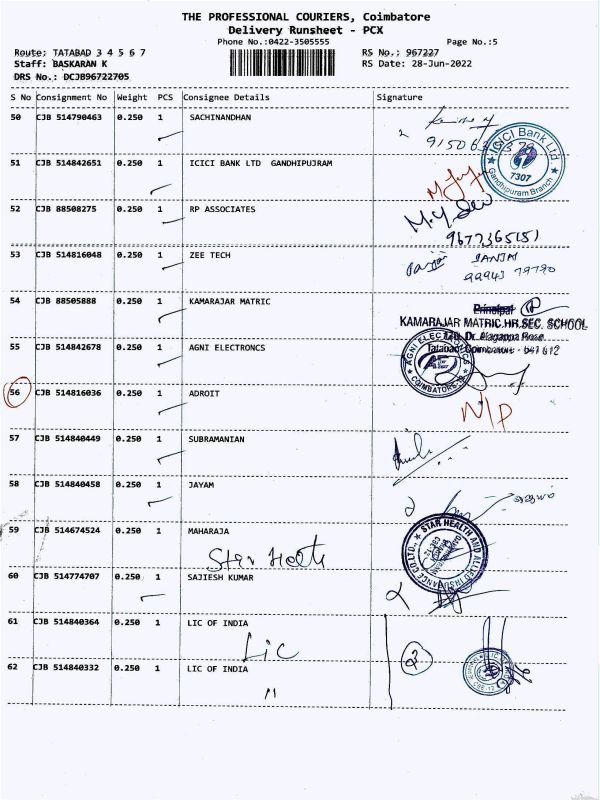 THE PROFESSIONAL COURIERS, Coimbatore
Delivery Runsheet - PCX
Phone No.:0422-3505555
Page No.:5
Route: TATABAD 3 4 5 6 7
RS No.: 967227
Staff: BASKARAN K
RS Date: 28-Jun-2022
DRS No.: DCJB96722705
S No Consignment No Weight PCS Consignee Details Signature
50 CJB 514790463 0.250 1 SACHINANDHAN
ICICI Bank Ltd
7307
Gandhipuram Branch
51 CJB 514842651 0.250 1 ICICI BANK LTD GANDHIPUJRAM
52 CJB 88508275 0.250 1 RP ASSOCIATES
9677365151
53 CJB 514816048 0.250 1 ZEE TECH
SANJAI
99943 79790
54 CJB 88505888 0.250 1 KAMARAJAR MATRIC
Principal
KAMARAJAR MATRIC.HR.SEC. SCHOOL
Dr. Alagappa Road
Tatabad Coimbatore - 641 012
55 CJB 514842678 0.250 1 AGNI ELECTRONCS
AGNI ELECTRONICS
COIMBATORE-12
56 CJB 514816036 0.250 1 ADROIT
N/P
57 CJB 514840449 0.250 1 SUBRAMANIAN
58 CJB 514840458 0.250 1 JAYAM
59 CJB 514674524 0.250 1 MAHARAJA
Star Health
STAR HEALTH AND ALLIED INSURANCE CO LTD.,
60 CJB 514774707 0.250 1 SAJIESH KUMAR
61 CJB 514840364 0.250 1 LIC OF INDIA
LIC
2
62 CJB 514840332 0.250 1 LIC OF INDIA
11